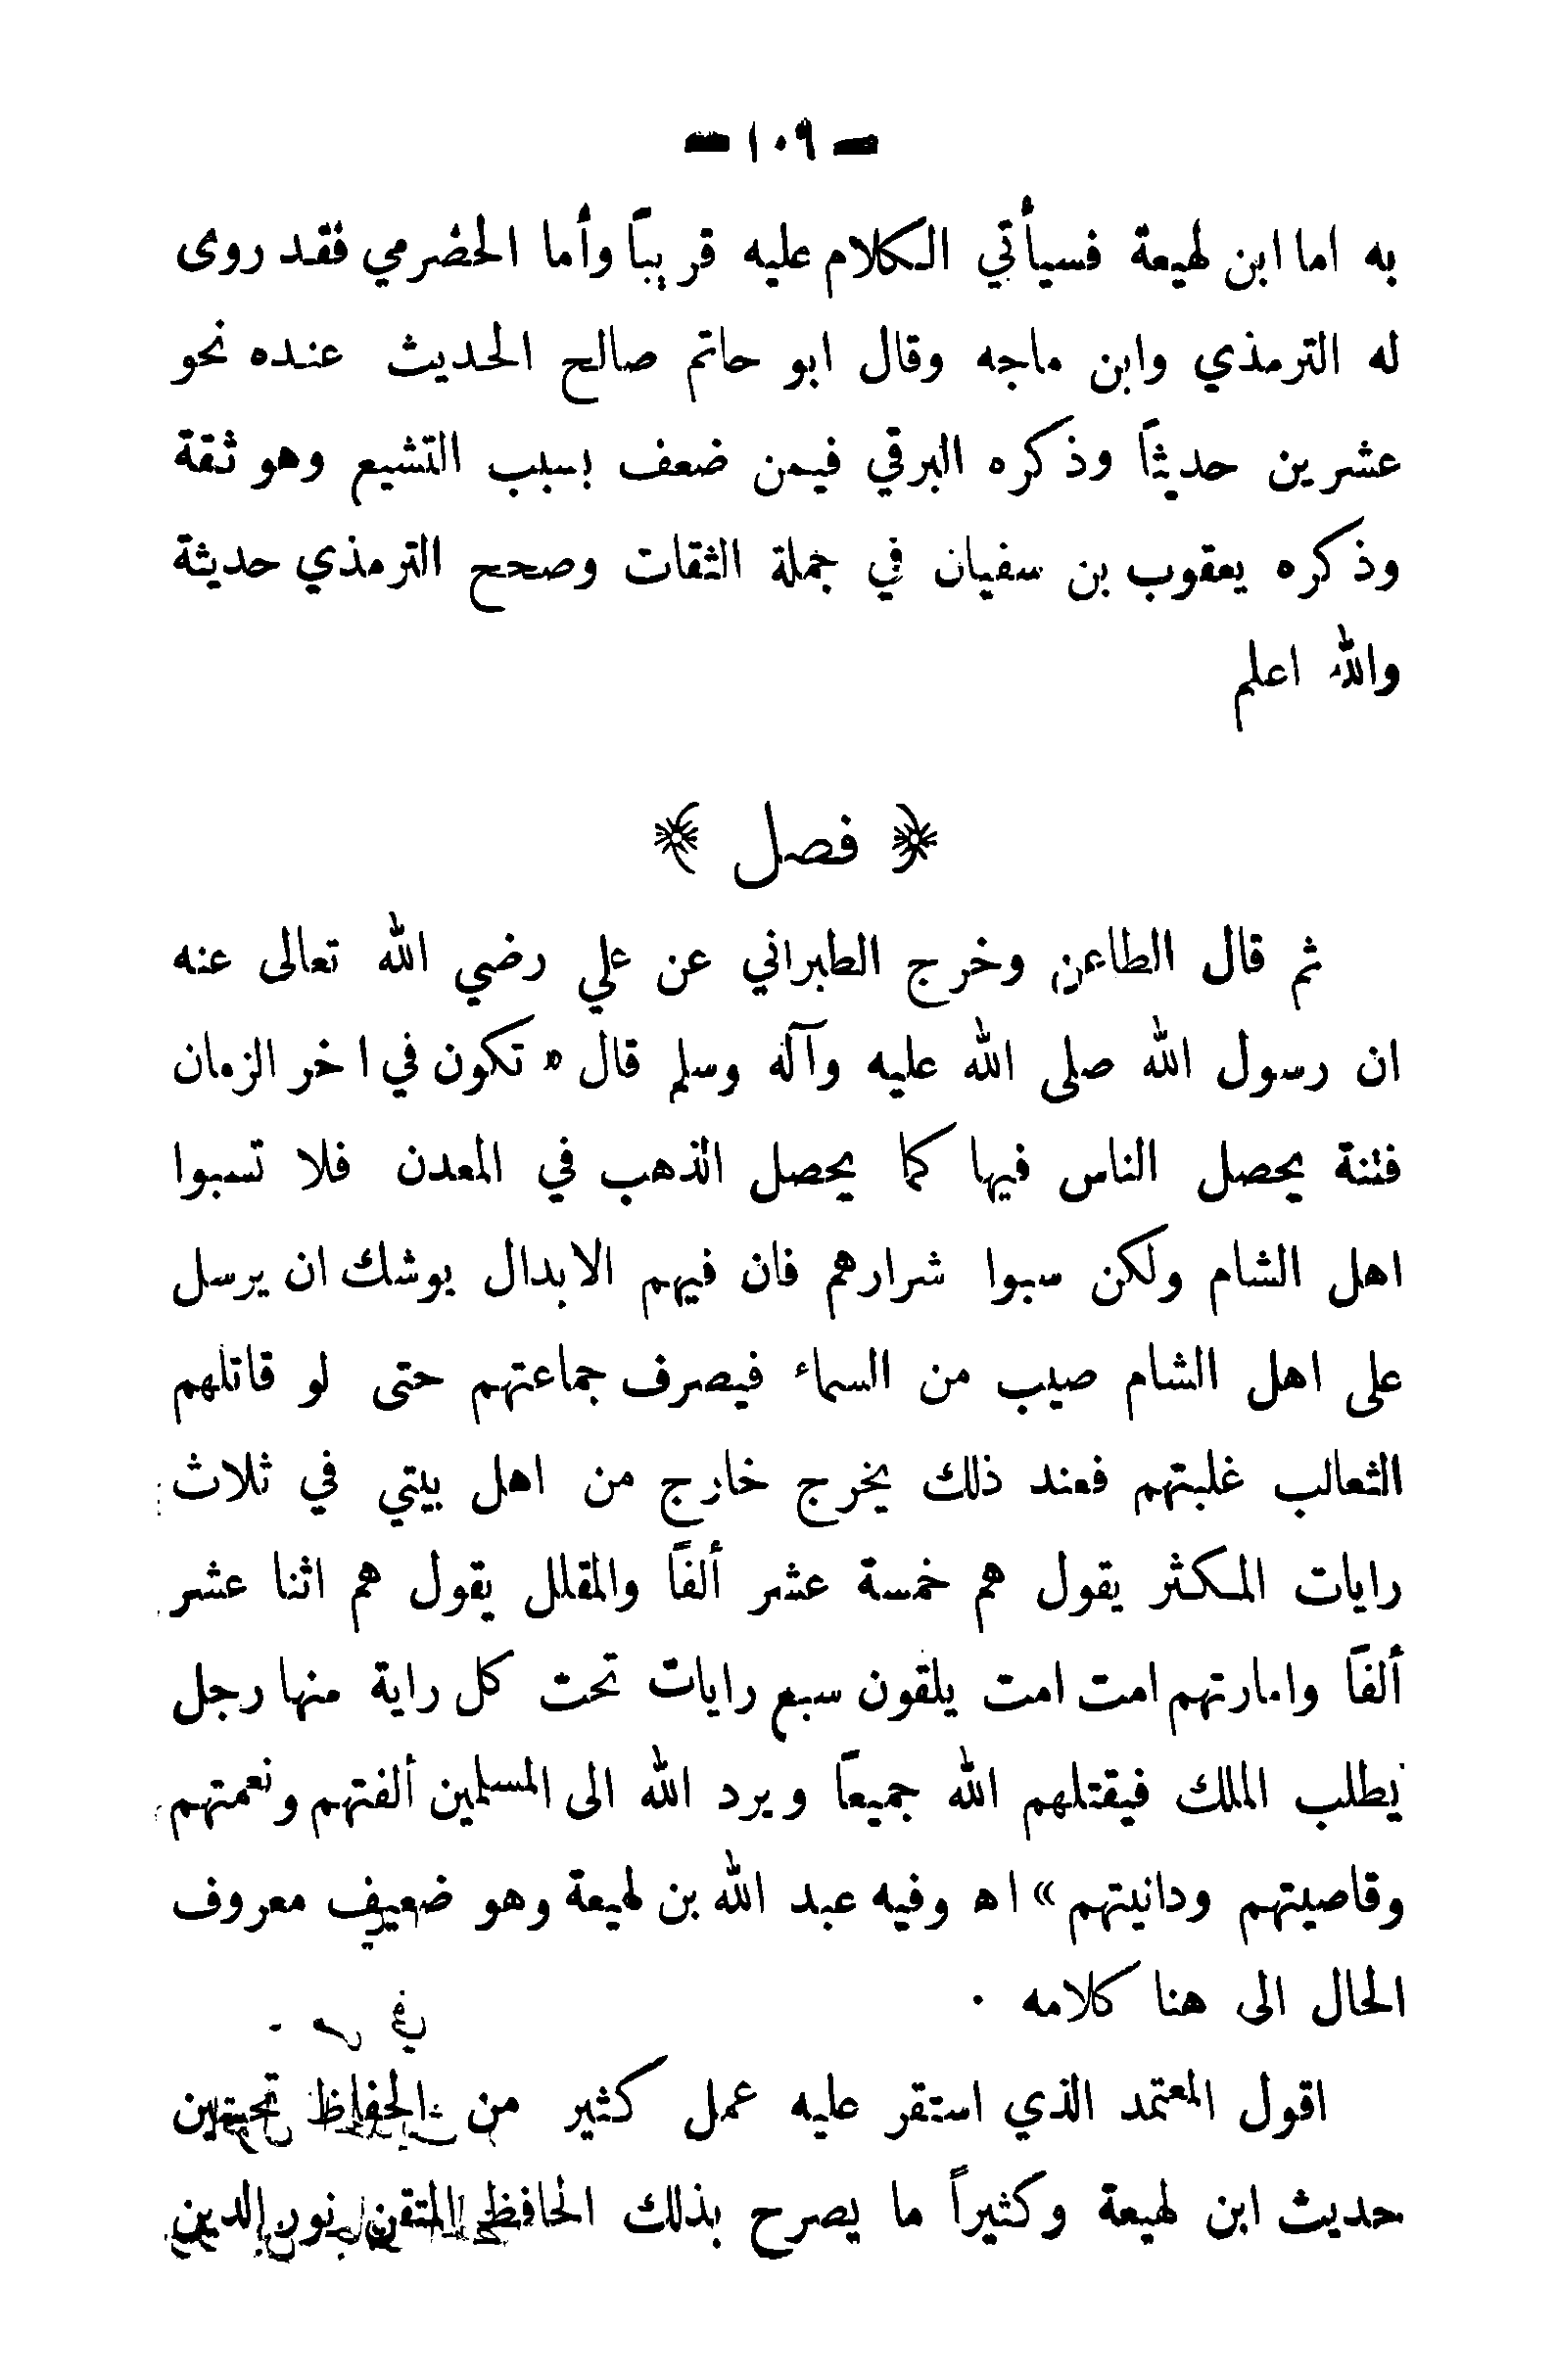 — ١٠٩ —
به اما ابن لهيعة فسيأتي الكلام عليه قريباً وأما الحضرمي فقد روى
له الترمذي وابن ماجه وقال ابو حاتم صالح الحديث عنده نحو
عشرين حديثاً وذكره البرقي فيمن ضعف بسبب التشيع وهو ثقة
وذكره يعقوب بن سفيان في جملة الثقات وصحح الترمذي حديثة
والله اعلم
﴿ فصل ﴾
ثم قال الطاعن وخرج الطبراني عن علي رضي الله تعالى عنه
ان رسول الله صلى الله عليه وآله وسلم قال « تكون في اخر الزمان
فتنة يحصل الناس فيها كما يحصل الذهب في المعدن فلا تسبوا
اهل الشام ولكن سبوا شرارهم فان فيهم الابدال يوشك ان يرسل
على اهل الشام صيب من السماء فيصرف جماعتهم حتى لو قاتلهم
الثعالب غلبتهم فعند ذلك يخرج خارج من اهل بيتي في ثلاث
رايات المكثر يقول هم خمسة عشر ألفاً والمقلل يقول هم اثنا عشر
ألفاً وامارتهم امت امت يلقون سبع رايات تحت كل راية منها رجل
يطلب الملك فيقتلهم الله جميعاً ويرد الله الى المسلمين ألفتهم ونعمتهم
وقاصيتهم ودانيتهم » اه وفيه عبد الله بن لهيعة وهو ضعيف معروف
الحال الى هنا كلامه ·
اقول المعتمد الذي استقر عليه عمل كثير من الحفاظ تحسين
حديث ابن لهيعة وكثيراً ما يصرح بذلك الحافظ المتقن نور الدين